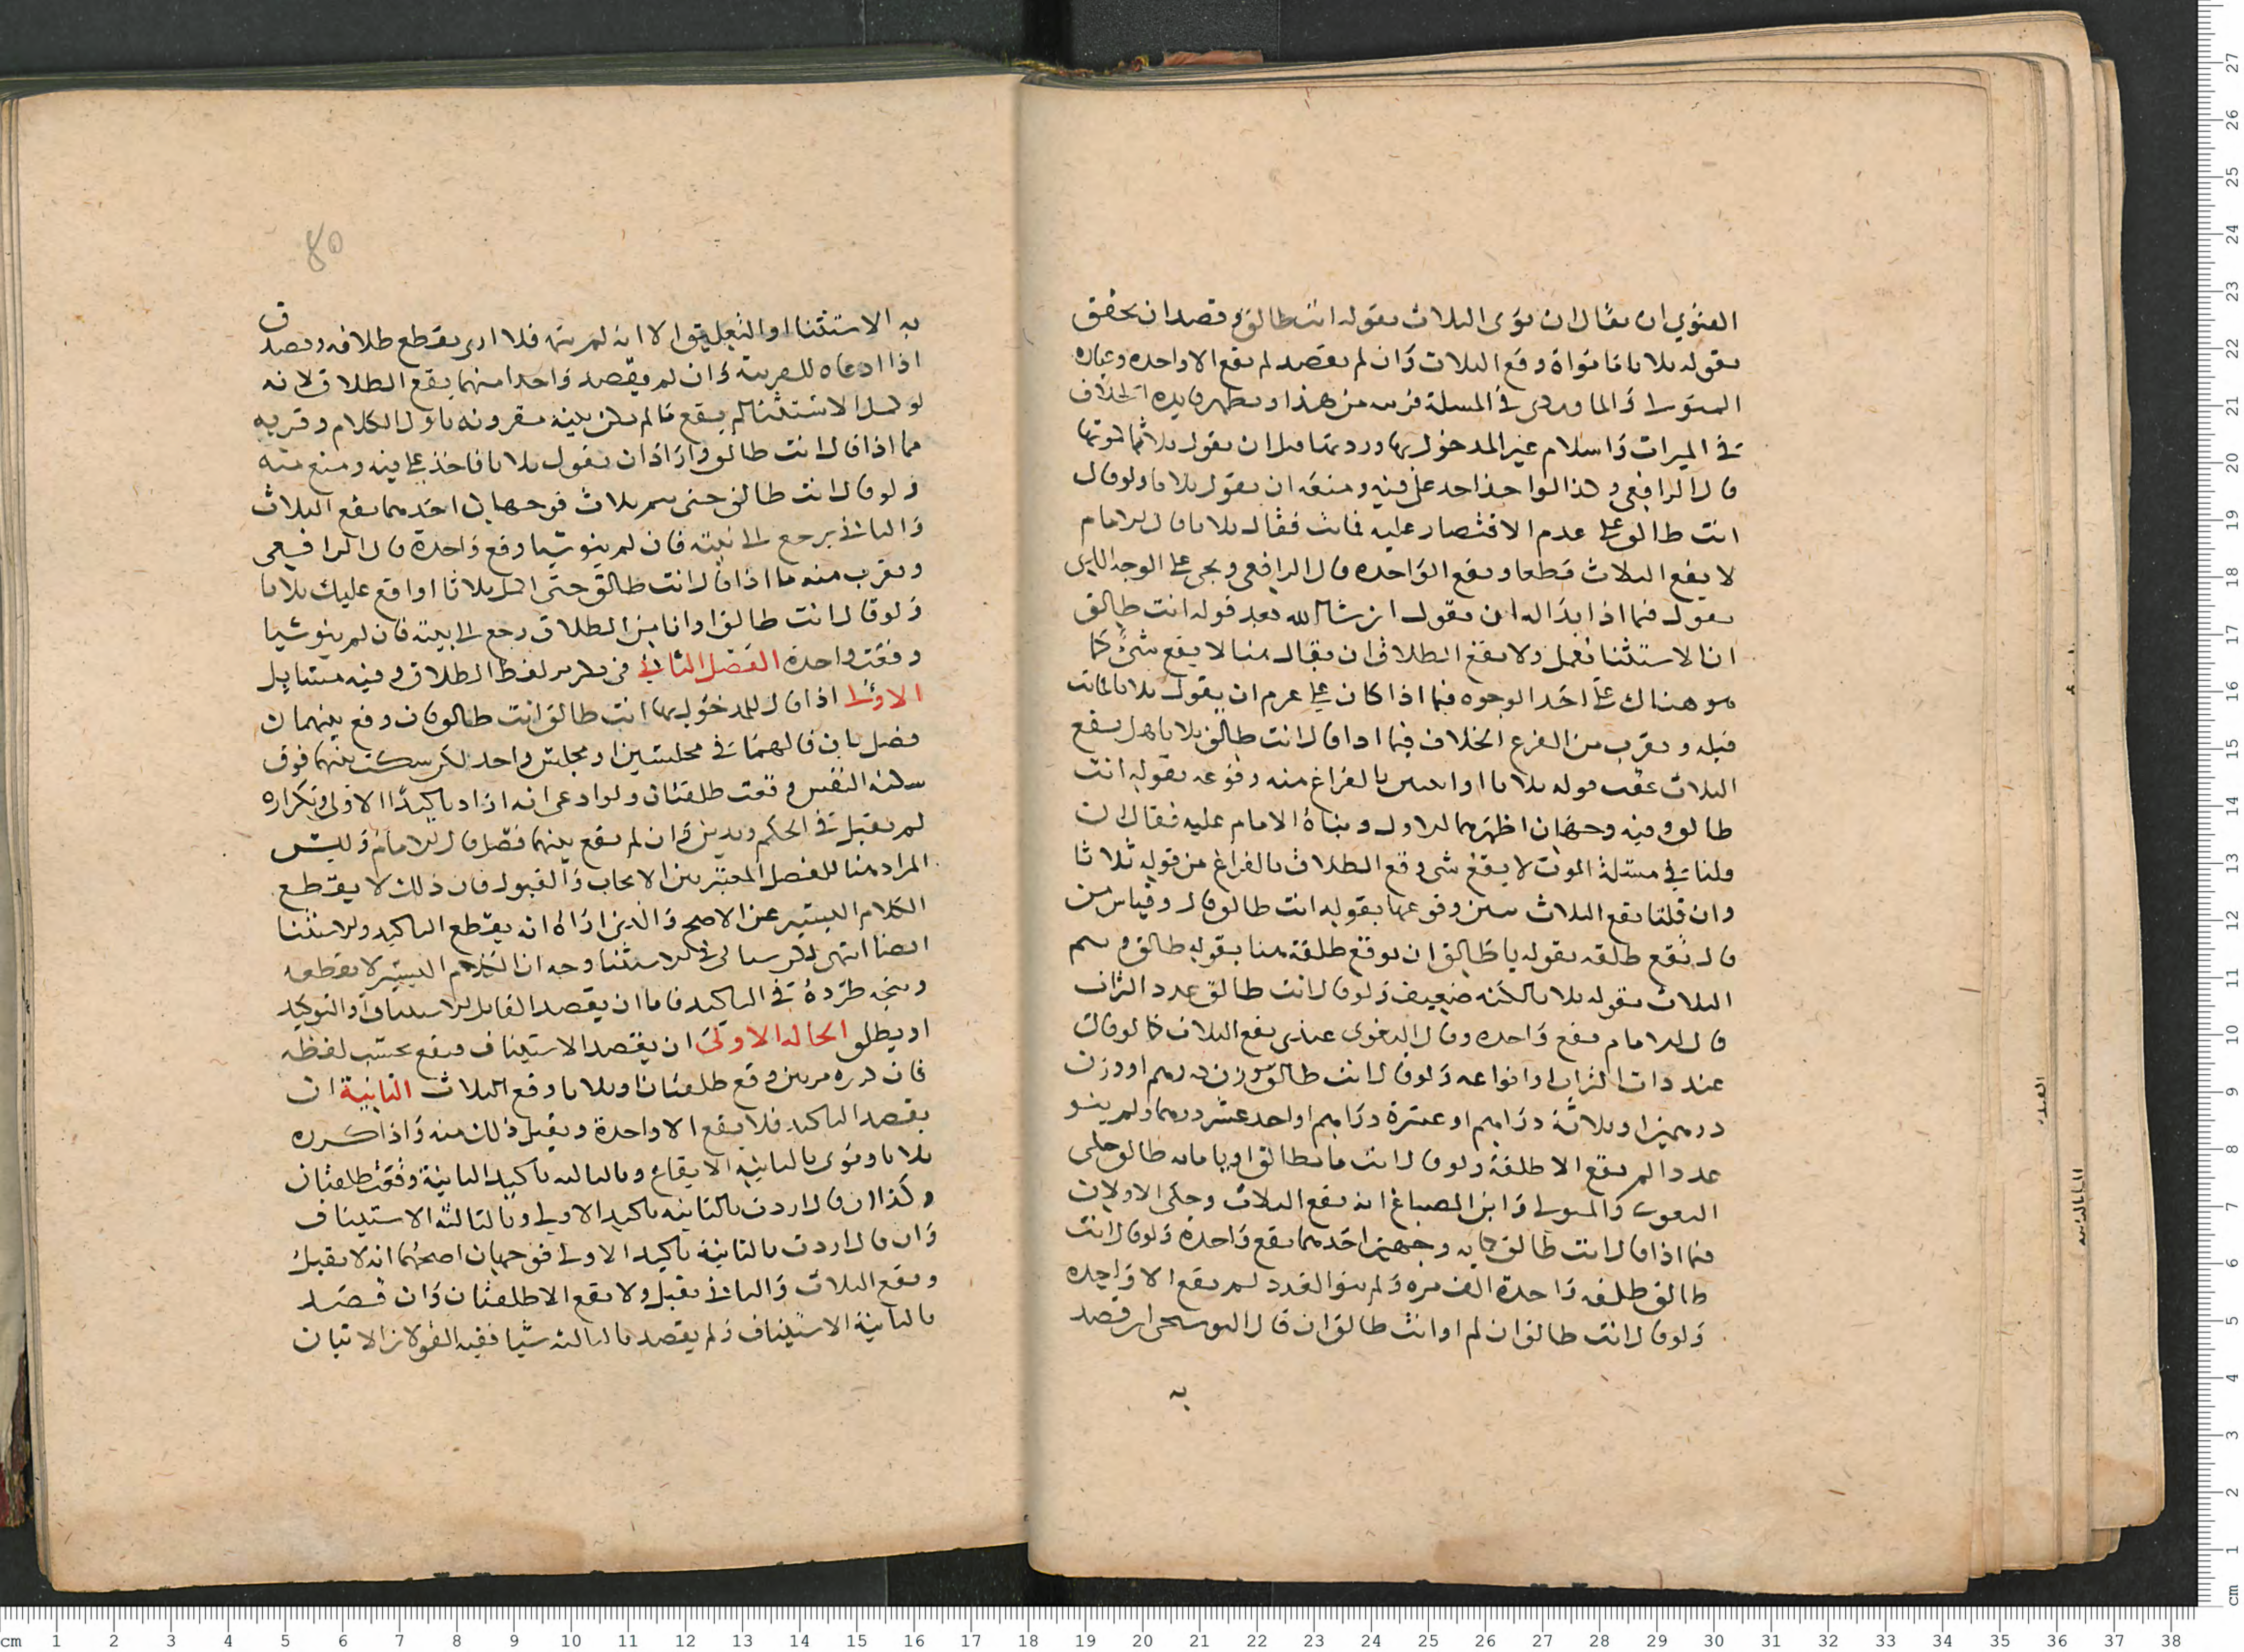 الفتوي ان يقال ان نوى الثلاث بقوله انت طالق وقصد ان يحقق
بقوله ثلاثا ما نواه وقع الثلاث وان لم يقصد لم يقع الا واحده وعباره
المتولي والماوردي في المسلة قريبه من هذا ويظهر فايده الخلاف
في الميراث واسلام غير المدخول بها وردتها قبل ان يقول ثلاثا
قال الرافعي وكذا لو اخذ احد على فيه ومنعه ان يقول ثلاثا ولو قال
انت طالق على عدم الاقتصار عليه فماتت فقال ثلاثا قال الامام
لا يقع الثلاث قطعا ويقع الواحده قال الرافعي ويجى على الوجه الذي
يقول فيما اذا بدا له ان يقول ان شا الله بعد قوله انت طالق
ان الاستثنا يعمل ولا يقع الطلاق ان يقال هنا لا يقع شيء كما
هو هناك على احد الوجوه فيما اذا كان على عزم ان يقول ثلاثا فماتت
قبله ويقرب من الفرع الخلاف فيما اذا قال انت طالق ثلاثا هل يقع
الثلاث عقب قوله ثلاثا او يتبين بالفراغ منه وقوعه بقوله انت
طالق وفيه وجهان اظهرهما الاول وبناه الامام عليه فقال ان
قلنا في مسئلة الموت لا يقع شى وقع الطلاق بالفراغ من قوله ثلاثا
وان قلنا يقع الثلاث تبين وقوعها بقوله انت طالق قال وقياس من
قال تقع طلقه بقوله يا طالق ان توقع طلقة هنا بقوله طالق ويتم
الثلاث بقوله ثلاثا لكنه ضعيف ولو قال انت طالق عدد التراب
قال الامام يقع واحده وقال البغوى عندي يقع الثلاث كما لو قال
عدد ذات التراب او انواعه ولو قال انت طالق وزن درهم او وزن
درهمين او ثلاثة دراهم او عشرة دراهم او احد عشر درهما ولم ينو
عددا لم يقع الا طلقة ولو قال انت مائة طالق او يا مائة طالق حكى
البغوى والمتولي وابن الصباغ انه يقع الثلاث وحكى الاولان
فيما اذا قال انت طالق كمايه وجهين احدهما يقع واحدة ولو قال انت
طالق طلقه واحدة الف مره ولم ينو العدد لم يقع الا واحده
ولو قال انت طالق ان لم او انت طالق ان قال البوسنجى ان قصد
به
80
به الاستثنا او التعليق الا انه لم يتمه فلا ارى يقطع طلاقه ويصدق
اذا ادعاه للقرينة وان لم يقصد واحدا منهما يقع الطلاق لانه
لو كمل الاستثنا لم يقع ما لم يكن بنيته مقرونه باول الكلام وقريبه
مما اذا قال انت طالق واراد ان يقول ثلاثا فاخذ على فيه ومنع منه
ولو قال انت طالق حتى يتم ثلاث فوجهان احدهما يقع الثلاث
والثاني يرجع الى نيته فان لم ينو شيا وقع واحدة قال الرافعي
ويقرب منه ما اذا قال انت طالق حتى اكمل ثلاثا او اوقع عليك ثلاثا
ولو قال انت طالق الوانا من الطلاق رجع الى نيته فان لم ينو شيا
وقعت واحدة الفصل الثاني في تكرير لفظ الطلاق وفيه مسايل
الاولى اذا قال للمدخول بها انت طالق انت طالق فان وقع بينهما
فصل بان قالهما في مجلسين او مجلس واحد لكن سكت بينهما فوق
سكتة النفس وقعت طلقتان ولو ادعى انه اراد تاكيد الاولى وتكراره
لم يقبل في الحكم ويدين وان لم يقع بينهما فصل قال الامام وليس
المراد هنا الفصل المعتبر بين الايجاب والقبول فان ذلك لا يقطع
الكلام اليسير على الاصح والذي اراه انه يقطع التاكيد والاستثنا
ايضا انتهى لكن سياتى في الاستثنا وجه ان الكلام اليسير لا يقطعه
ويتجه طرده في التاكيد فاما ان يقصد القايل الاستيناف او التوكيد
او يطلق الحاله الاولى ان يقصد الاستيناف فيقع بحسب لفظه
فان كرره مرتين وقع طلقتان او ثلاثا وقع الثلاث الثانية ان
يقصد التاكيد فلا يقع الا واحدة ويقبل ذلك منه واذا كرره
ثلاثا ونوى بالثانية الايقاع وبالثالثه تاكيد الثانية وقعت طلقتان
وكذا ان قال اردت بالثانيه تاكيد الاولى وبالثالثه الاستيناف
وان قال اردت بالثانية تاكيد الاولى فوجهان اصحهما انه لا يقبل
ويقع الثلاث والثاني يقبل ولا يقع الا طلقتان وان قصد
بالثانية الاستيناف ولم يقصد بالثالثه شيا ففيه القولان الاتيان